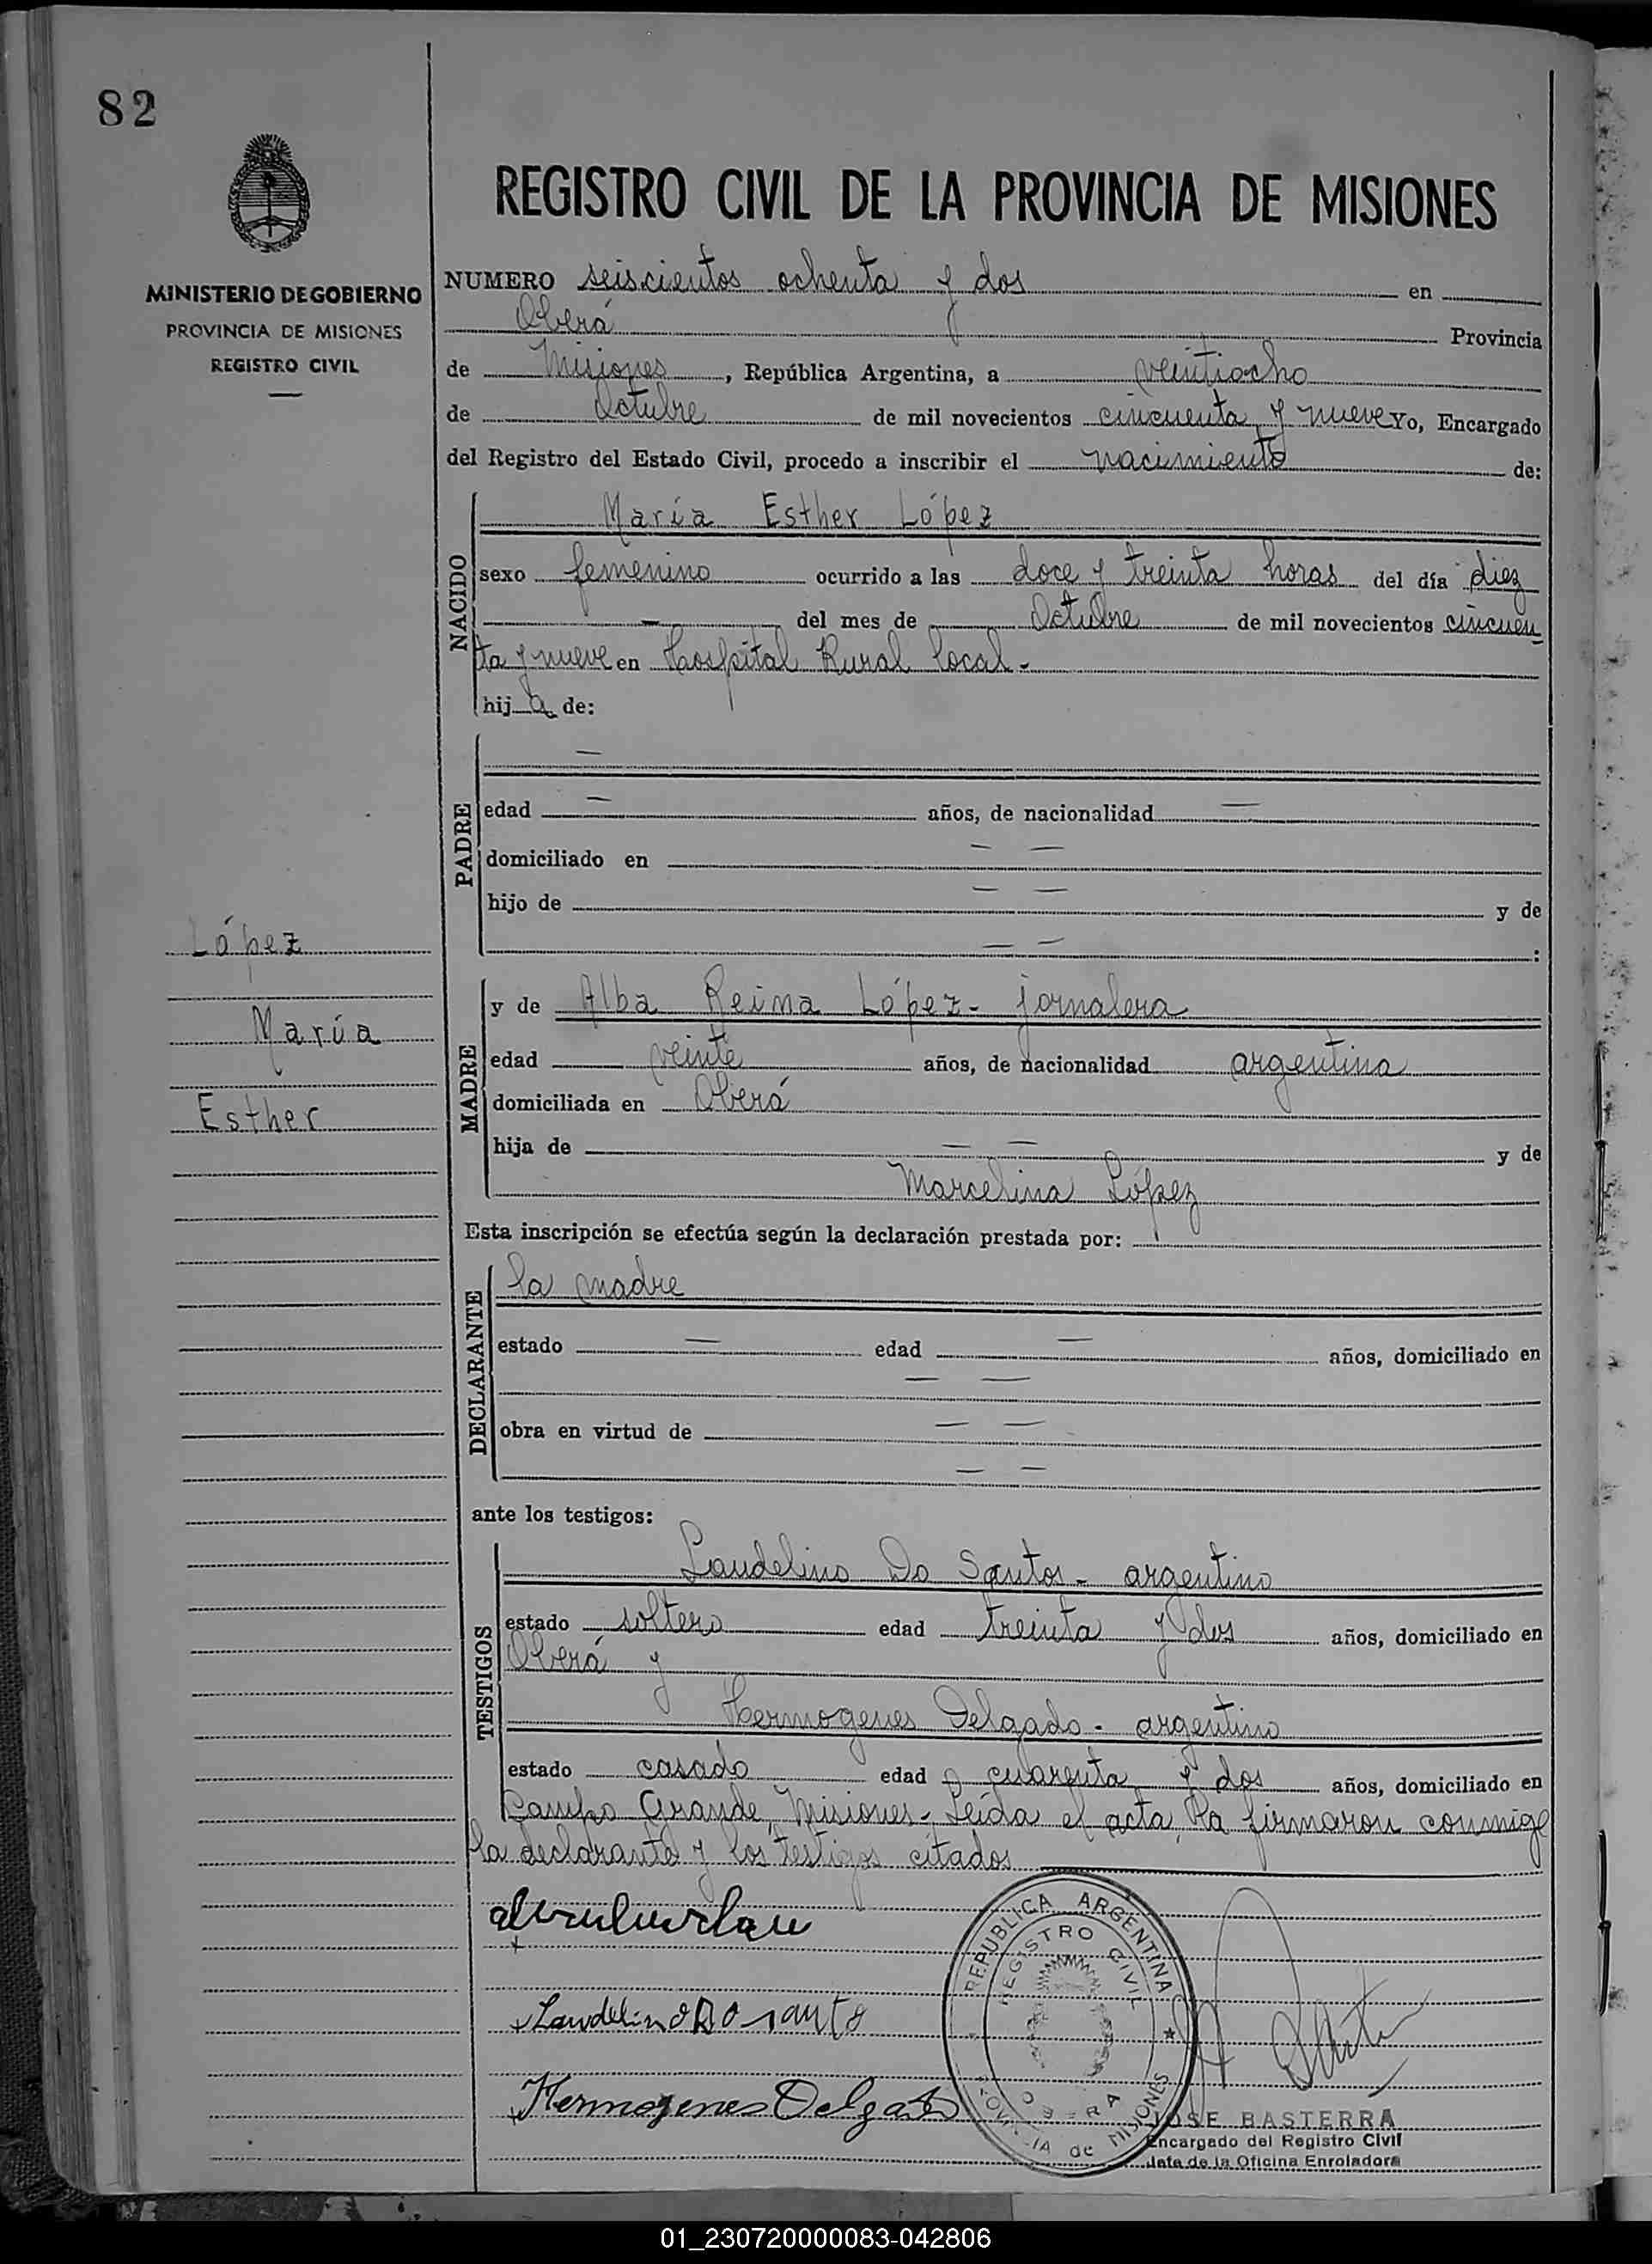 82
MINISTERIO DE GOBIERNO
PROVINCIA DE MISIONES
REGISTRO CIVIL
REGISTRO CIVIL DE LA PROVINCIA DE MISIONES
NUMERO seiscientos ochenta y dos en
Oberá Provincia
de Misiones, República Argentina, a veintiocho
de Octubre de mil novecientos cincuenta y nueve Yo, Encargado
del Registro del Estado Civil, procedo a inscribir el nacimiento de:
NACIDO
María Esther López
sexo femenino ocurrido a las doce y treinta horas del día diez
— del mes de Octubre de mil novecientos cincuen
ta y nueve en Hospital Rural local.-
hija de:
PADRE
—
edad — años, de nacionalidad —
domiciliado en — —
hijo de — — y de
— — :
López
María
Esther
MADRE
y de Alba Reina López - jornalera
edad veinte años, de nacionalidad argentina
domiciliada en Oberá
hija de — — y de
Marcelina López
Esta inscripción se efectúa según la declaración prestada por:
DECLARANTE
la madre
estado — edad — años, domiciliado en
— —
obra en virtud de — —
— —
ante los testigos:
TESTIGOS
Laudelino Do Santos - argentino
estado soltero edad treinta y dos años, domiciliado en
Oberá y
Hermogenes Delgado - argentino
estado casado edad cuarenta y dos años, domiciliado en
Campo Grande, Misiones.- Leída el acta, la firmaron conmigo
la declarante y los testigos citados
Laudelino Do santo
Hermogenes Delgado
REPUBLICA ARGENTINA
REGISTRO CIVIL
OBERA
PROVINCIA de MISIONES
JOSE BASTERRA
Encargado del Registro Civil
Jefe de la Oficina Enroladora
01_230720000083-042806